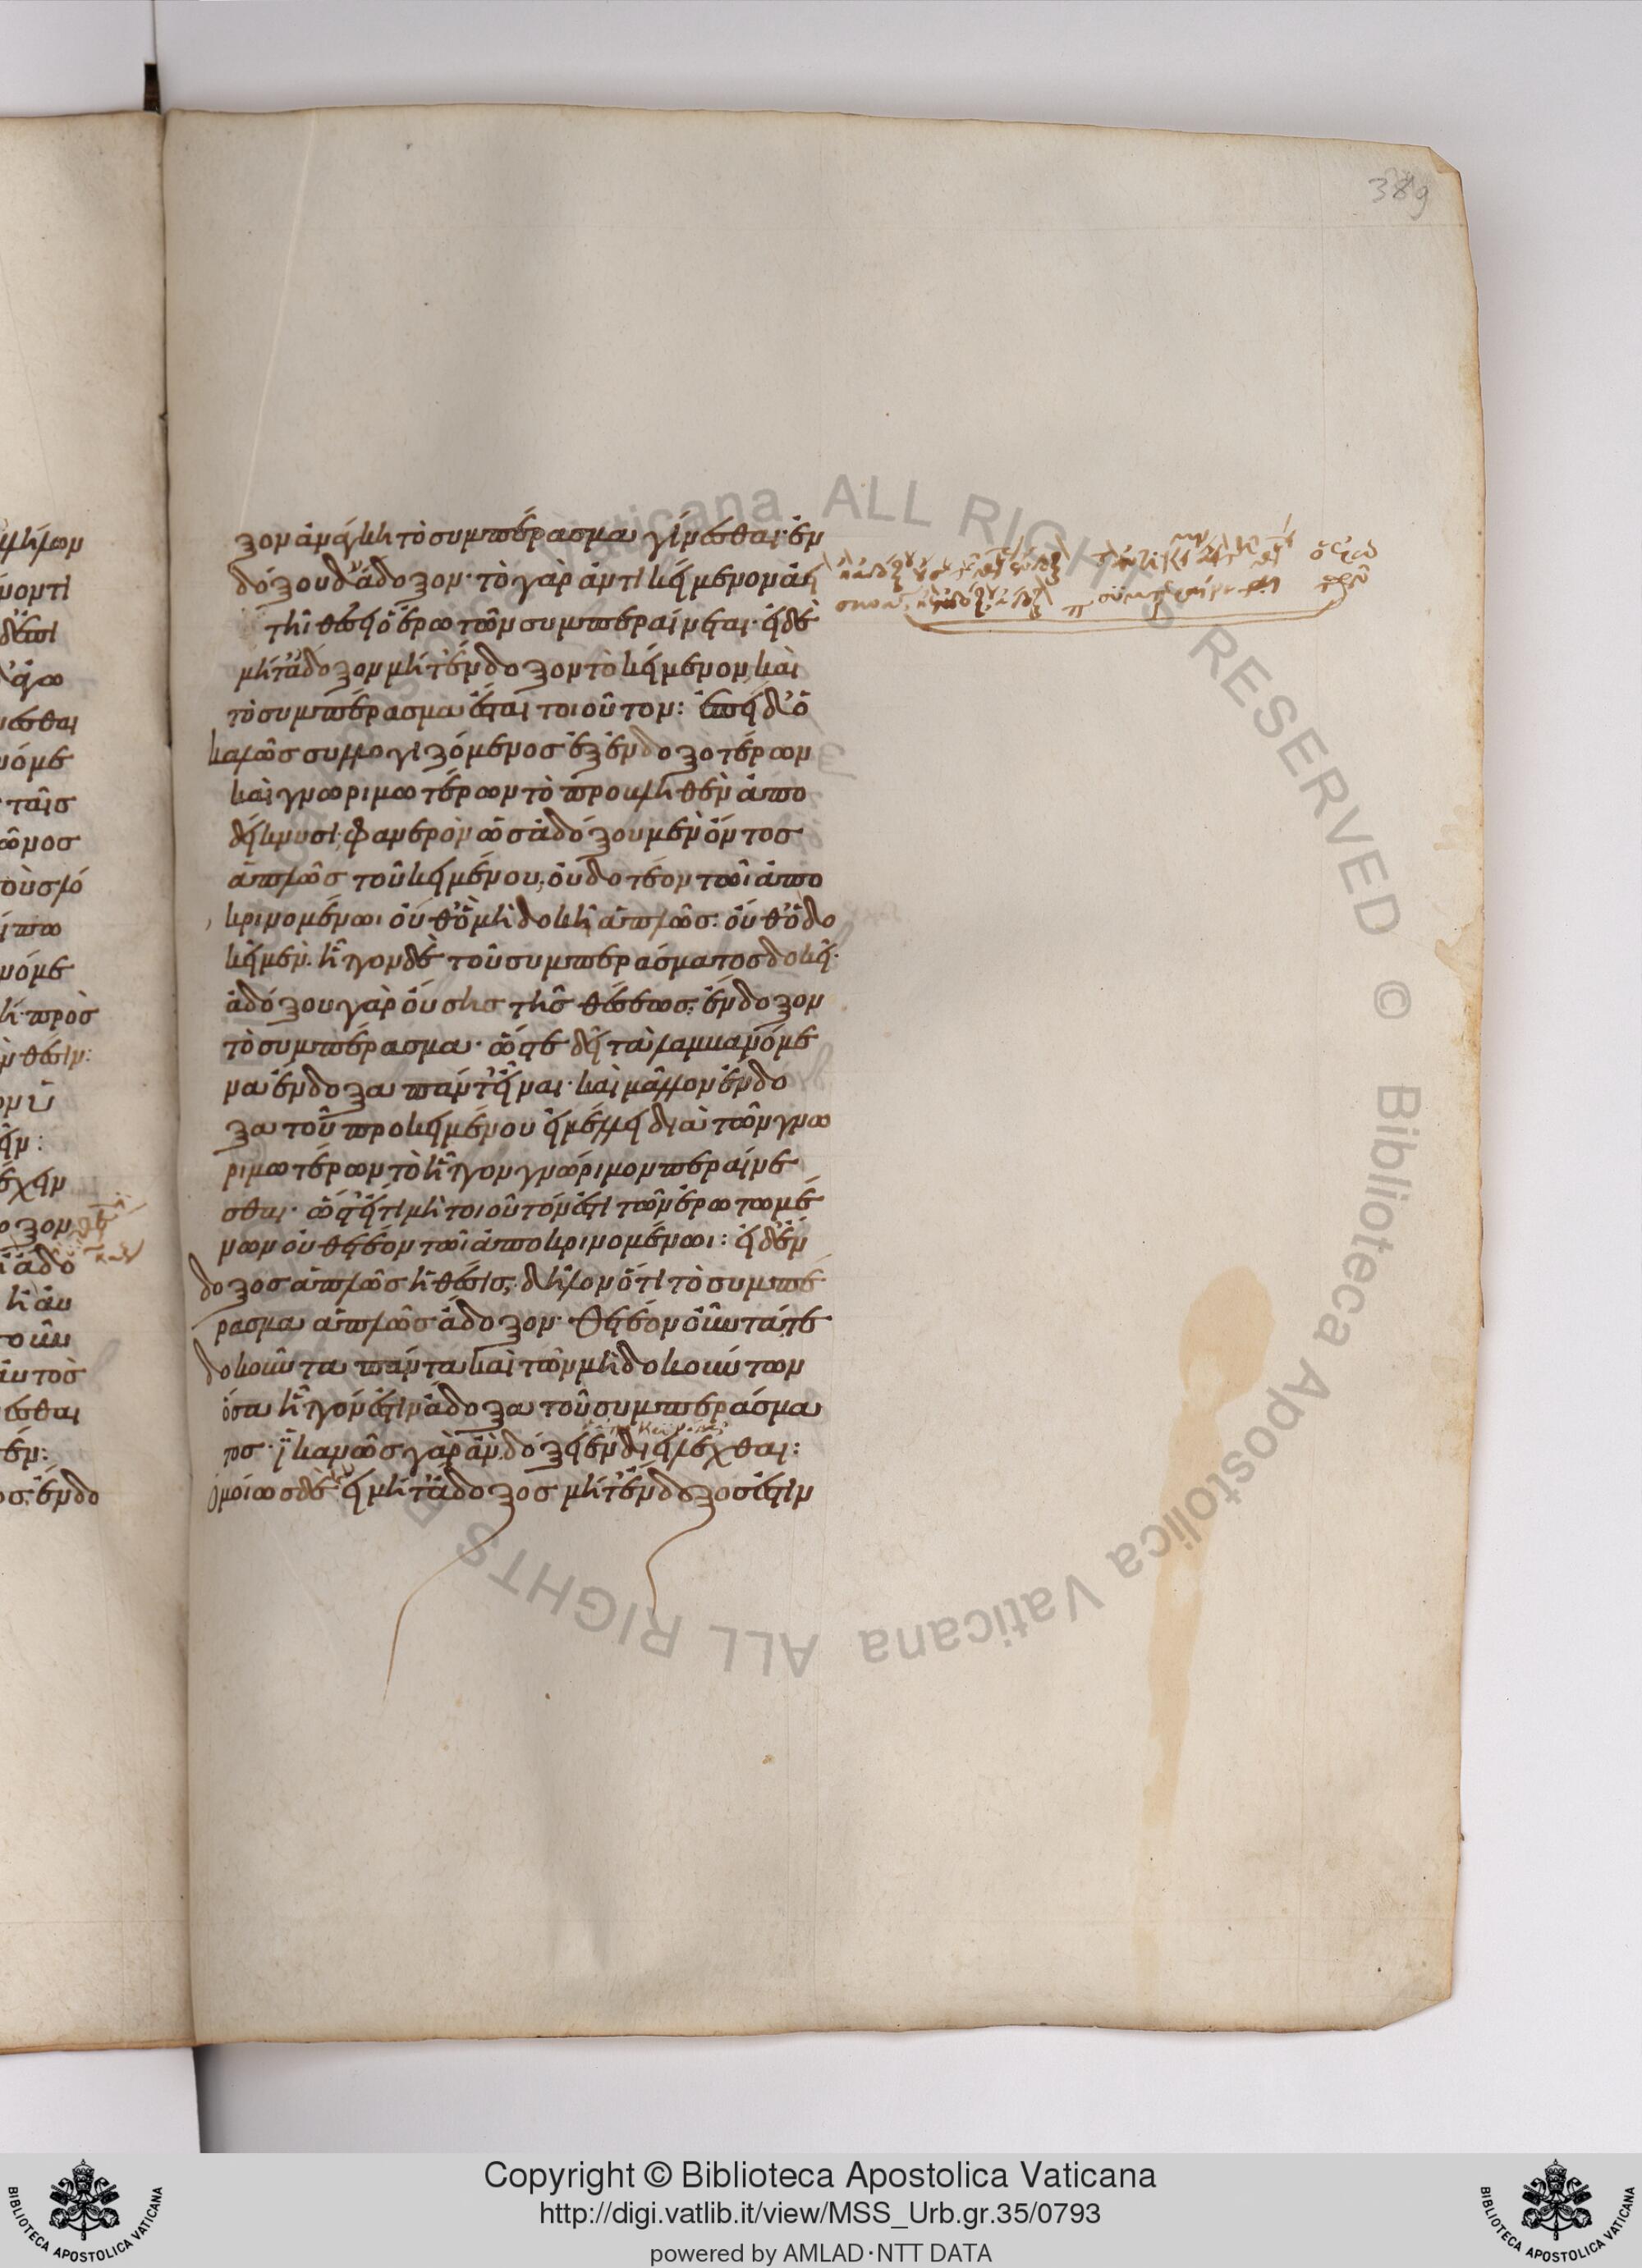 389
ξον ἀνάγκη τὸ συμπέρασμα γίνεσθαι· ἐν
δόξου δ' ἄδοξον· τὸ γὰρ ἀντικείμενον ἀεὶ
τῆι θέσει ὁ ἐρωτῶν συμπεραίνεται· εἰ δὲ
μήτ' ἄδοξον μήτ' ἔνδοξον τὸ κείμενον, καὶ
τὸ συμπέρασμα ἔσται τοιοῦτον: ἐπεὶ δ' ὁ
καλῶς συλλογιζόμενος ἐξ ἐνδοξοτέρων
καὶ γνωριμωτέρων τὸ προβληθὲν ἀπο
δείκνυσι· φανερὸν ὡς ἀδόξου μὲν ὄντος
ἁπλῶς τοῦ κειμένου, οὐ δοτέον τῶι ἀπο
κρινομένωι οὔθ' ὃ μὴ δοκεῖ ἁπλῶς· οὔθ' ὃ δο
κεῖ μὲν· ἧττον δὲ τοῦ συμπεράσματος δοκεῖ·
ἀδόξου γὰρ οὔσης τῆς θέσεως· ἔνδοξον
τὸ συμπέρασμα· ὥστε δεῖ τὰ λαμβανόμε
να ἔνδοξα πάντ' εἶναι· καὶ μᾶλλον ἔνδο
ξα τοῦ προκειμένου εἰ μέλλει διὰ τῶν γνω
ριμωτέρων τὸ ἧττον γνώριμον περαίνε
σθαι· ὥστ' εἴ τι μὴ τοιοῦτόν ἐστι τῶν ἐρωτωμέ
νων οὐ θετέον τῶι ἀποκρινομένωι: εἰ δ' ἔν
δοξος ἁπλῶς ἡ θέσις, δῆλον ὅτι τὸ συμπέ
ρασμα ἁπλῶς ἄδοξον· θετέον οὖν τά τε
δοκοῦντα πάντα καὶ τῶν μὴ δοκούντων
ὅσα ἧττόν ἐστιν ἄδοξα τοῦ συμπεράσμα
τος· ἱκανῶς γὰρ ἂν δόξειεν διειλέχθαι:
ὁμοίως δὲ εἰ μήτ' ἄδοξος μήτ' ἔνδοξός ἐστιν
Copyright © Biblioteca Apostolica Vaticana
http://digi.vatlib.it/view/MSS_Urb.gr.35/0793
powered by AMLAD·NTT DATA